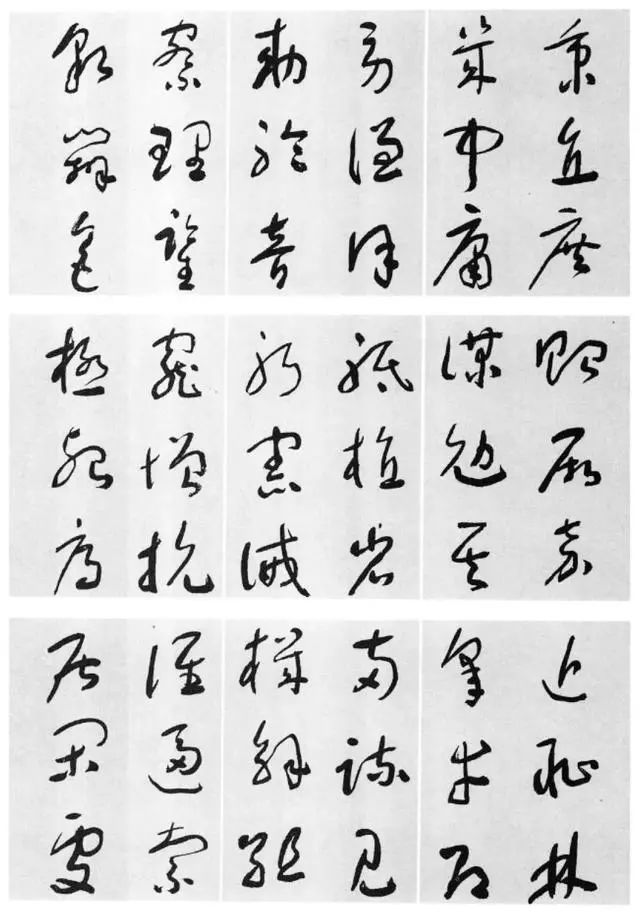 秉直庶
幾中庸
勞謙謹
敕聆音
察理鑑
貌辨色
貽厥嘉
謀勉其
祗植省
躬譏誡
寵增抗
極殆辱
近恥林
皋幸即
兩疏見
機解組
誰逼索
居閑處